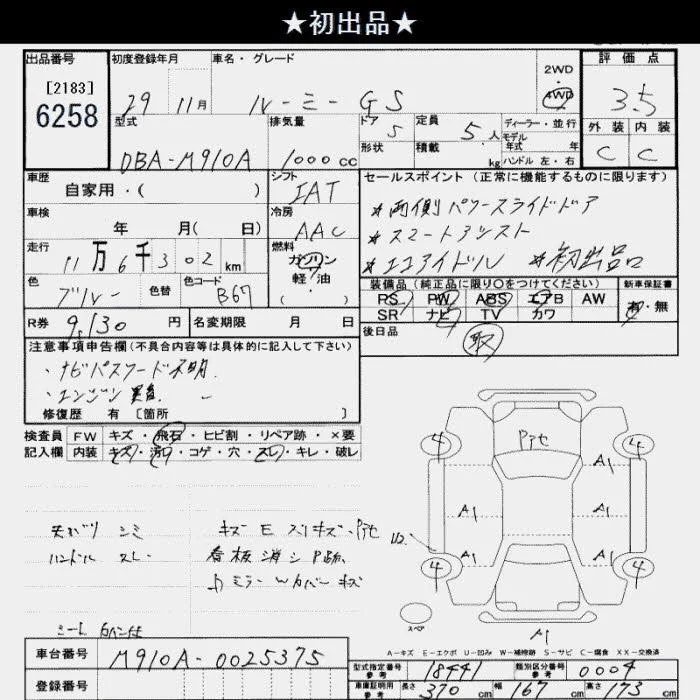 ★初出品★
出品番号
[2183]
6258
初度登録年月
29 11月
車名・グレード
ルーミー GS
2WD
・
4WD
評価点
3.5
型式
DBA-M910A
排気量
1000 cc
ドア
5
定員
5 人
ディーラー・並行
モデル
年式 年
形状
積載
kg
ハンドル 左・右
外装 内装
C C
車歴
自家用・( )
シフト
IAT
セールスポイント (正常に機能するものに限ります)
*両側パワースライドドア
*スマートアシスト
*エコアイドル *初出品
車検
年 月( 日)
冷房
AAC
走行
11万6千302 km
燃料
ガソリン
軽・油
・( )
色
ブルー
色替
色コード
B67
装備品 (純正品に限り○をつけてください)
PS PW ABS エアB AW
SR ナビ TV カワ
新車保証書
有・無
R券 9,130 円
名変期限 月 日
後日品
取
注意事項申告欄(不具合内容等は具体的に記入して下さい)
・ナビパスワード不明
・エンジン異音
修復歴 有 [箇所 ]
検査員 FW キズ・飛石・ヒビ割・リペア跡・×要
記入欄 内装 キズ・汚レ・コゲ・穴・スレ・キレ・破レ
天バリ シミ
ハンドル スレ
キズ E スリキズ・Pアセ
看板消シ P跡
ミラー Wカバー キズ
シート カバー付
4 4 4 4
Pアセ
A1 A1 A1 A1 A1
U2
A1
スペア
A-キズ E-エクボ U-凹み W-補修跡 S-サビ C-腐食 XX-交換済
車台番号 M910A-0025375
登録番号
型式指定番号
参考
18441
類別区分番号
参考
0004
車庫証明用
参考
長さ 370 cm 幅 167 cm 高さ 173 cm